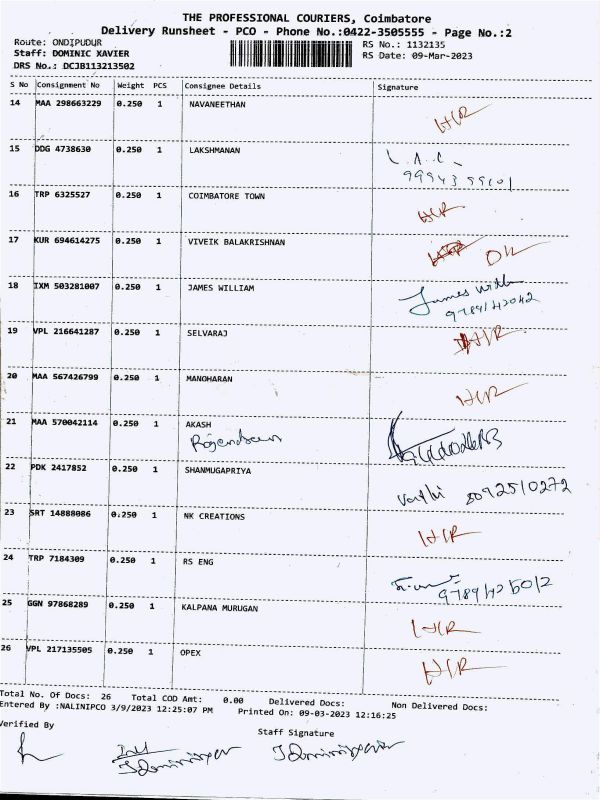 THE PROFESSIONAL COURIERS, Coimbatore
Delivery Runsheet - PCO - Phone No.:0422-3505555 - Page No.:2
Route: ONDIPUDUR RS No.: 1132135
Staff: DOMINIC XAVIER RS Date: 09-Mar-2023
DRS No.: DCJB113213502
S No Consignment No Weight PCS Consignee Details Signature
14 MAA 298663229 0.250 1 NAVANEETHAN HR
15 DDG 4738630 0.250 1 LAKSHMANAN
16 TRP 6325527 0.250 1 COIMBATORE TOWN HR
17 KUR 694614275 0.250 1 VIVEIK BALAKRISHNAN
18 IXM 503281007 0.250 1 JAMES WILLIAM James
19 VPL 216641287 0.250 1 SELVARAJ HR
20 MAA 567426799 0.250 1 MANOHARAN HR
21 MAA 570042114 0.250 1 AKASH
22 PDK 2417852 0.250 1 SHANMUGAPRIYA 8092510272
23 SRT 14888086 0.250 1 NK CREATIONS HR
24 TRP 7184309 0.250 1 RS ENG
25 GGN 97868289 0.250 1 KALPANA MURUGAN HR
26 VPL 217135505 0.250 1 OPEX HR
Total No. Of Docs: 26 Total COD Amt: 0.00 Delivered Docs: Non Delivered Docs:
Entered By :NALINIPCO 3/9/2023 12:25:07 PM Printed On: 09-03-2023 12:16:25
Verified By Staff Signature